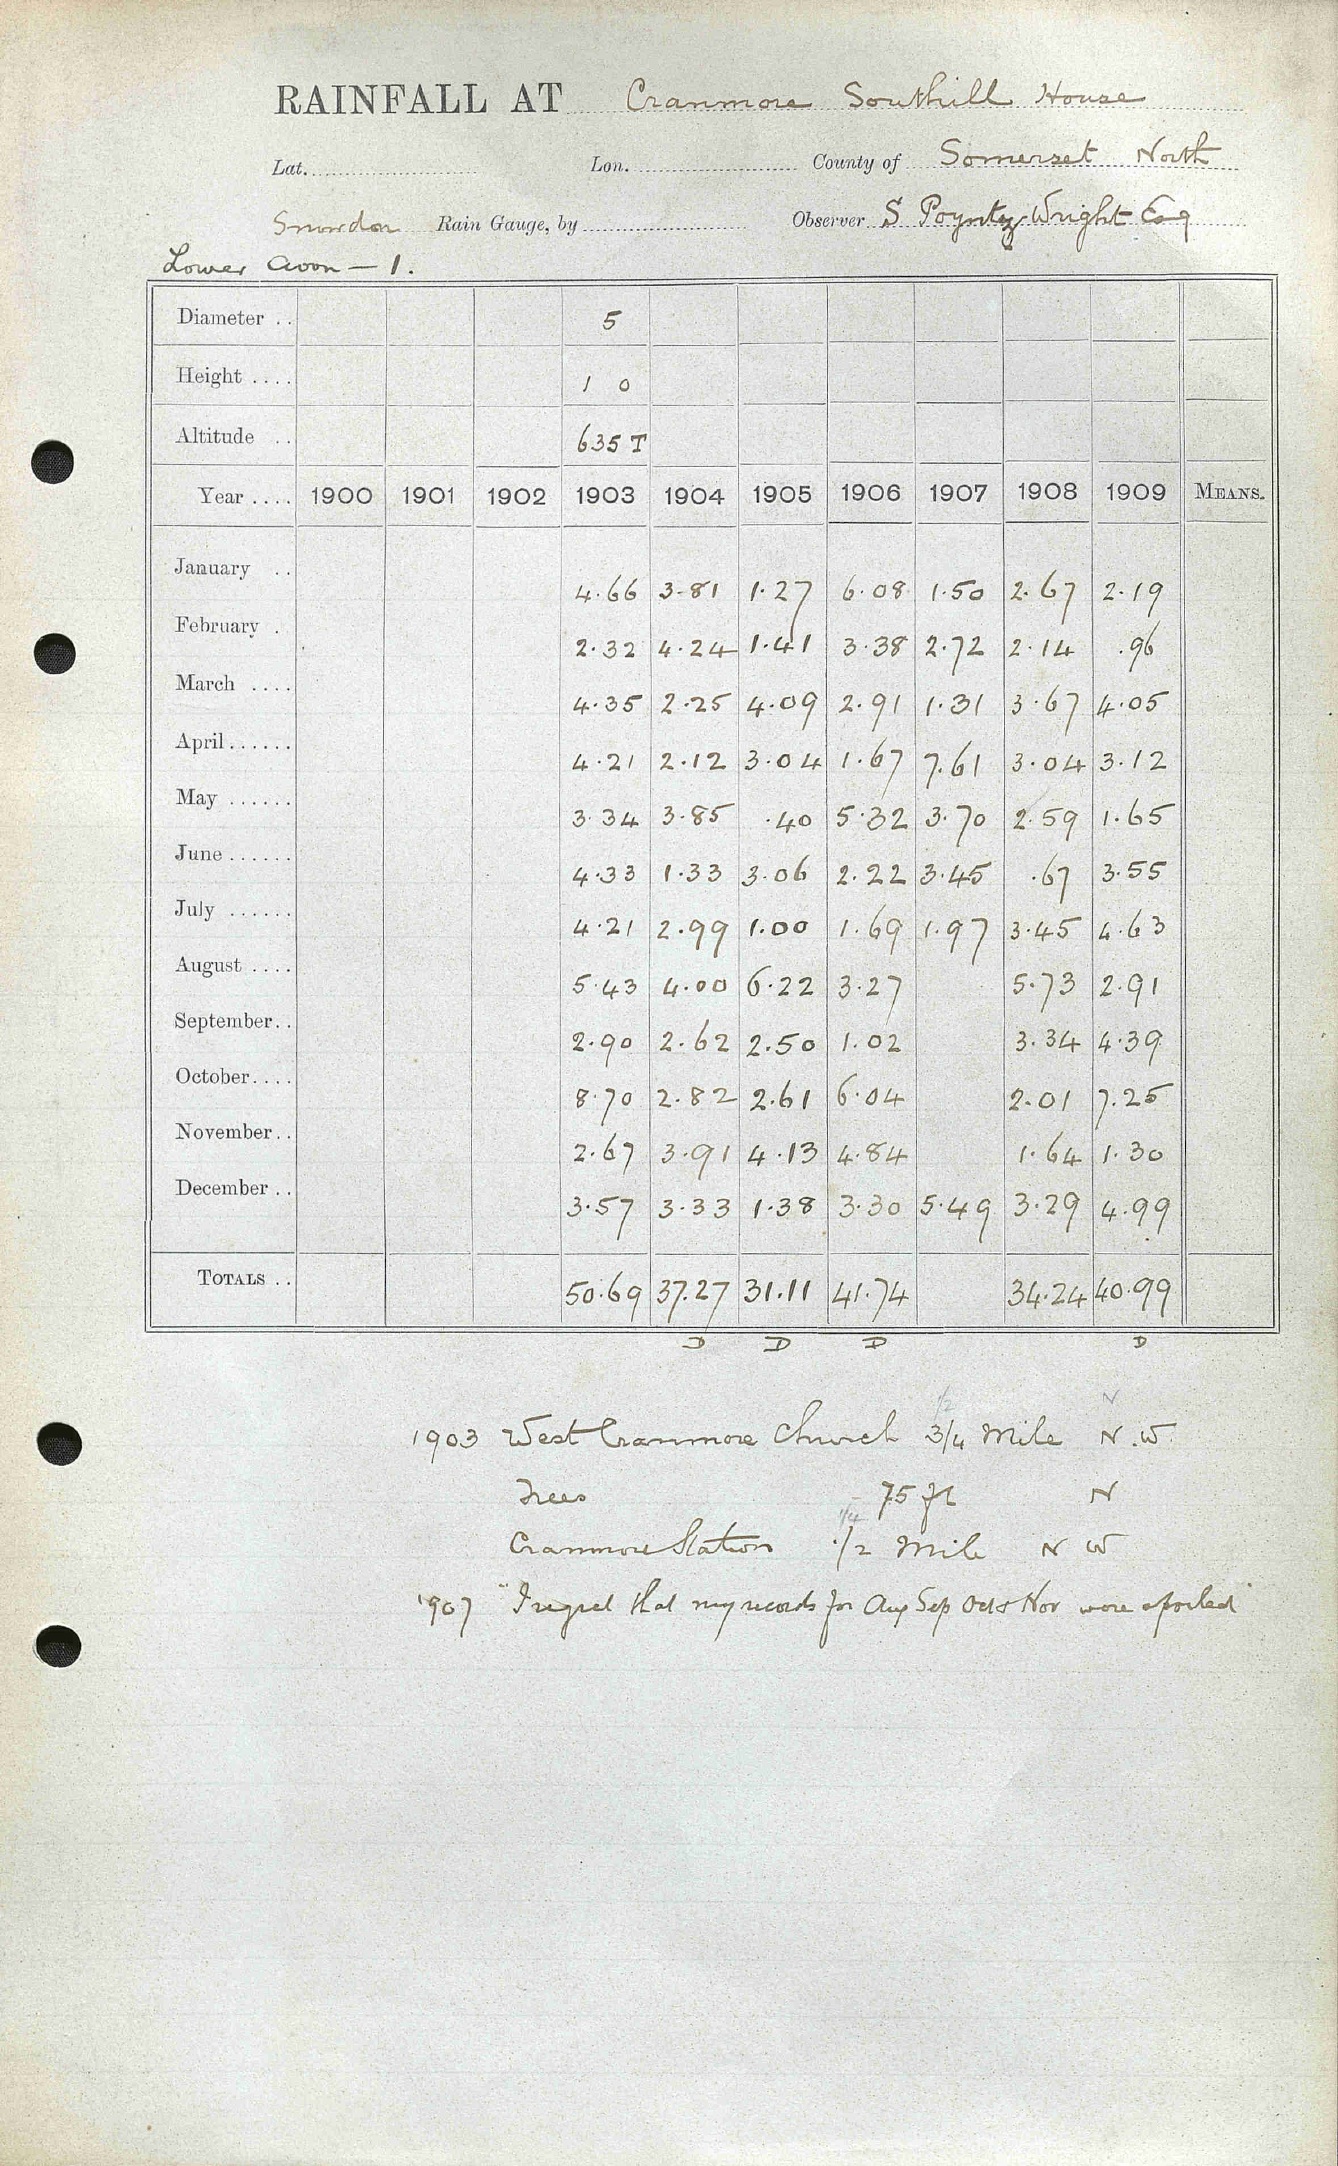 RAINFALL AT Cranmore Southill House
Lat. Lon. County of Somerset North
Snowdon Rain Gauge, by Observer S Poyntz Wright Esq
Lower Avon – 1.
Diameter .. 5
Height .... 1 0
Altitude .. 635 T
Year .... 1900 1901 1902 1903 1904 1905 1906 1907 1908 1909 MEANS.
January .. 4.66 3.81 1.27 6.08 1.50 2.67 2.19
February . 2.32 4.24 1.41 3.38 2.72 2.14 .96
March .... 4.35 2.25 4.09 2.91 1.31 3.67 4.05
April ...... 4.21 2.12 3.04 1.67 7.61 3.04 3.12
May ...... 3.34 3.85 .40 5.32 3.70 2.59 1.65
June ...... 4.33 1.33 3.06 2.22 3.45 .67 3.55
July ...... 4.21 2.99 1.00 1.69 1.97 3.45 4.63
August .... 5.43 4.00 6.22 3.27 5.73 2.91
September.. 2.90 2.62 2.50 1.02 3.34 4.39
October.... 8.70 2.82 2.61 6.04 2.01 7.25
November.. 2.67 3.91 4.13 4.84 1.64 1.30
December .. 3.57 3.33 1.38 3.30 5.49 3.29 4.99
TOTALS .. 50.69 37.27 31.11 41.74 34.24 40.99
D D D D
1/2 N
1903 West Cranmore Church 3/4 Mile N.W.
Trees 75 ft N
1/4
Cranmore Station 1/2 Mile N W
1907 "I regret that my records for Aug Sep Oct & Nov were spoiled"